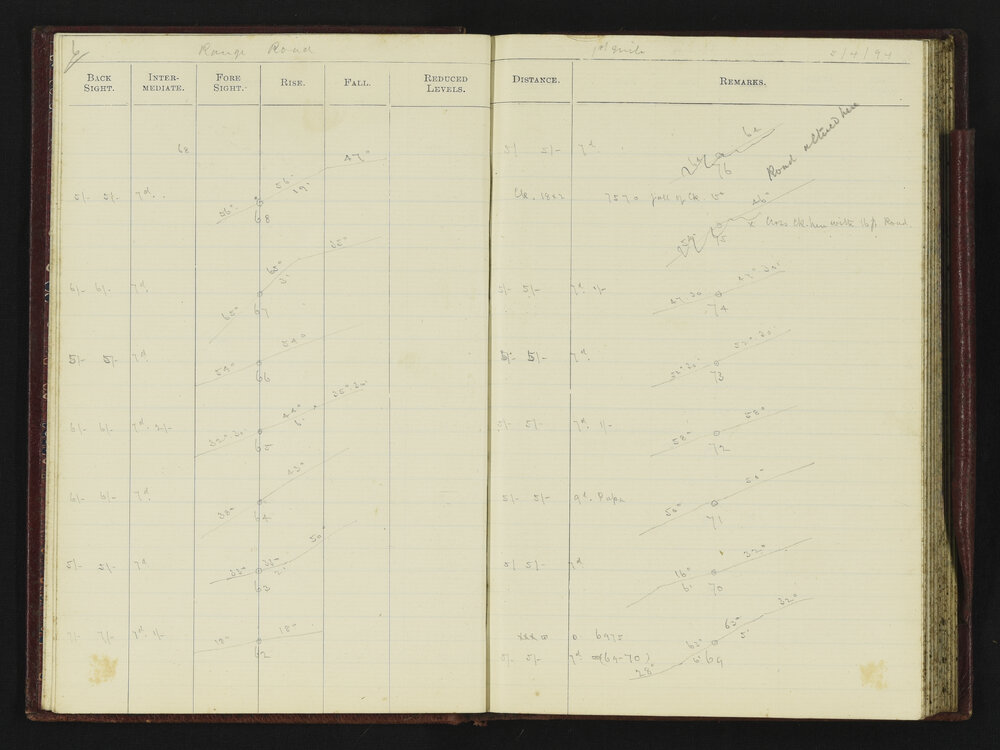 6 Range Road
BACK SIGHT. INTER-MEDIATE. FORE SIGHT. RISE. FALL. REDUCED LEVELS.
68
47°
56° 29'
5/- 5/- 7d.
56° 68
35°
65° 3'
6/- 6/- 7d.
65° 67
54°
5/- 5/- 7d.
54° 66
35° 30'
44° 6'
6/- 6/- 7d. 2/-
32° 30' 65
43°
6/- 6/- 7d.
38° 64
50°
5/- 5/- 7d
33° 33° 2'
63
18°
7/- 7/- 7d. 1/-
18° 62
1st mile 5/4/94
DISTANCE. REMARKS.
5/- 5/- 7d.
64
76
Road altered here
7570 fall of Ck.
46°
75
x Cross Ck. here with Road.
5/- 5/- 7d. 1/-
47° 30' 47° 30'
74
5/- 5/- 7d.
52° 30' 52° 30'
73
5/- 5/- 7d. 1/-
58° 58°
72
5/- 5/- 9d. Papa
50° 50°
71
5/- 5/- 7d
16° 32°
6' 70
xxx 0 6975
63° 63° 32°
5'
5/- 5/- 7d. (64-70)
28° 6' 69